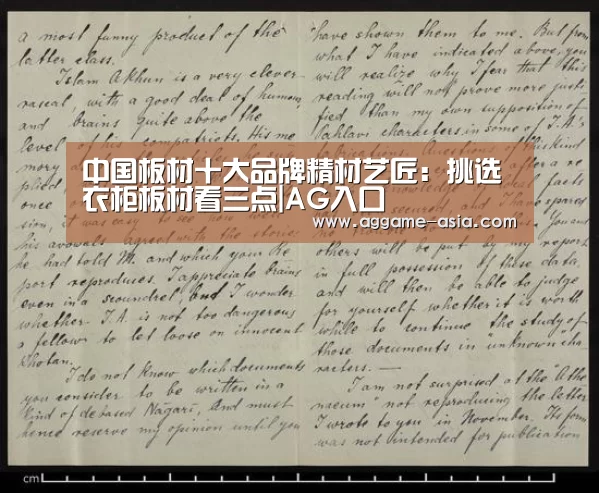 a most funny product of the
latter class.
Islam Akhun is a very clever
rascal, with a good deal of humour
and brains quite above the
level of his compatriots. His me
mory
plied
once
sion, it was easy to see how well
his avowals agreed with the stories
he had told M. and which your Re
port reproduces. I appreciate brains
even in a scoundrel, and I wonder
whether I.A. is not too dangerous
a fellow to let loose on innocent
Khotan.
I do not know which documents
you consider to be written in a
kind of debased Nāgari, and must
hence reserve my opinion until you
have shown them to me. But from
what I have indicated above, you
will realize why I fear that this
reading will not prove more justi
fied than my own supposition of
Pahlavi characters in some of I.A.'s
fabrications. Questions of this kind
after a re
knowledge of local facts
secured, and I have spared
no trouble to You and
others will be put by my report
in full possession of these data
and will then be able to judge
for yourself whether it is worth
while to continue the study of
those documents in "unknown cha
racters. —
I am not surprised at the "Athe
naeum" not reproducing the letter
I wrote to you in November. Its form
was not intended for publication
中国板材十大品牌精材艺匠：挑选
衣柜板材看三点|AG入口
www.aggame-asia.com
cm